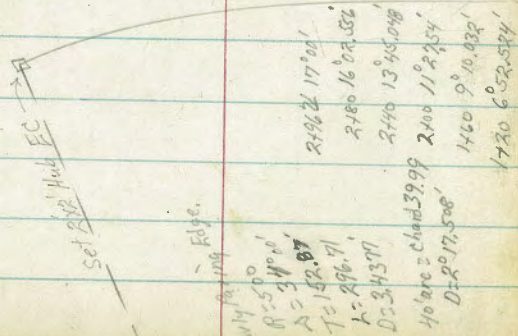 Set 2"x2" Hub EC
W'ly Paving Edge.
R=500
Δ = 34°00'
T=152.87
L= 296.71
D=3.4377'
40' arc = chord 39.99
D=2° 17.508'
2+96.71 17°00'
2+80 16°02.556
2+40 13°45.048'
2+00 11°27.54'
1+60 9°10.032'
1+20 6°52.524'